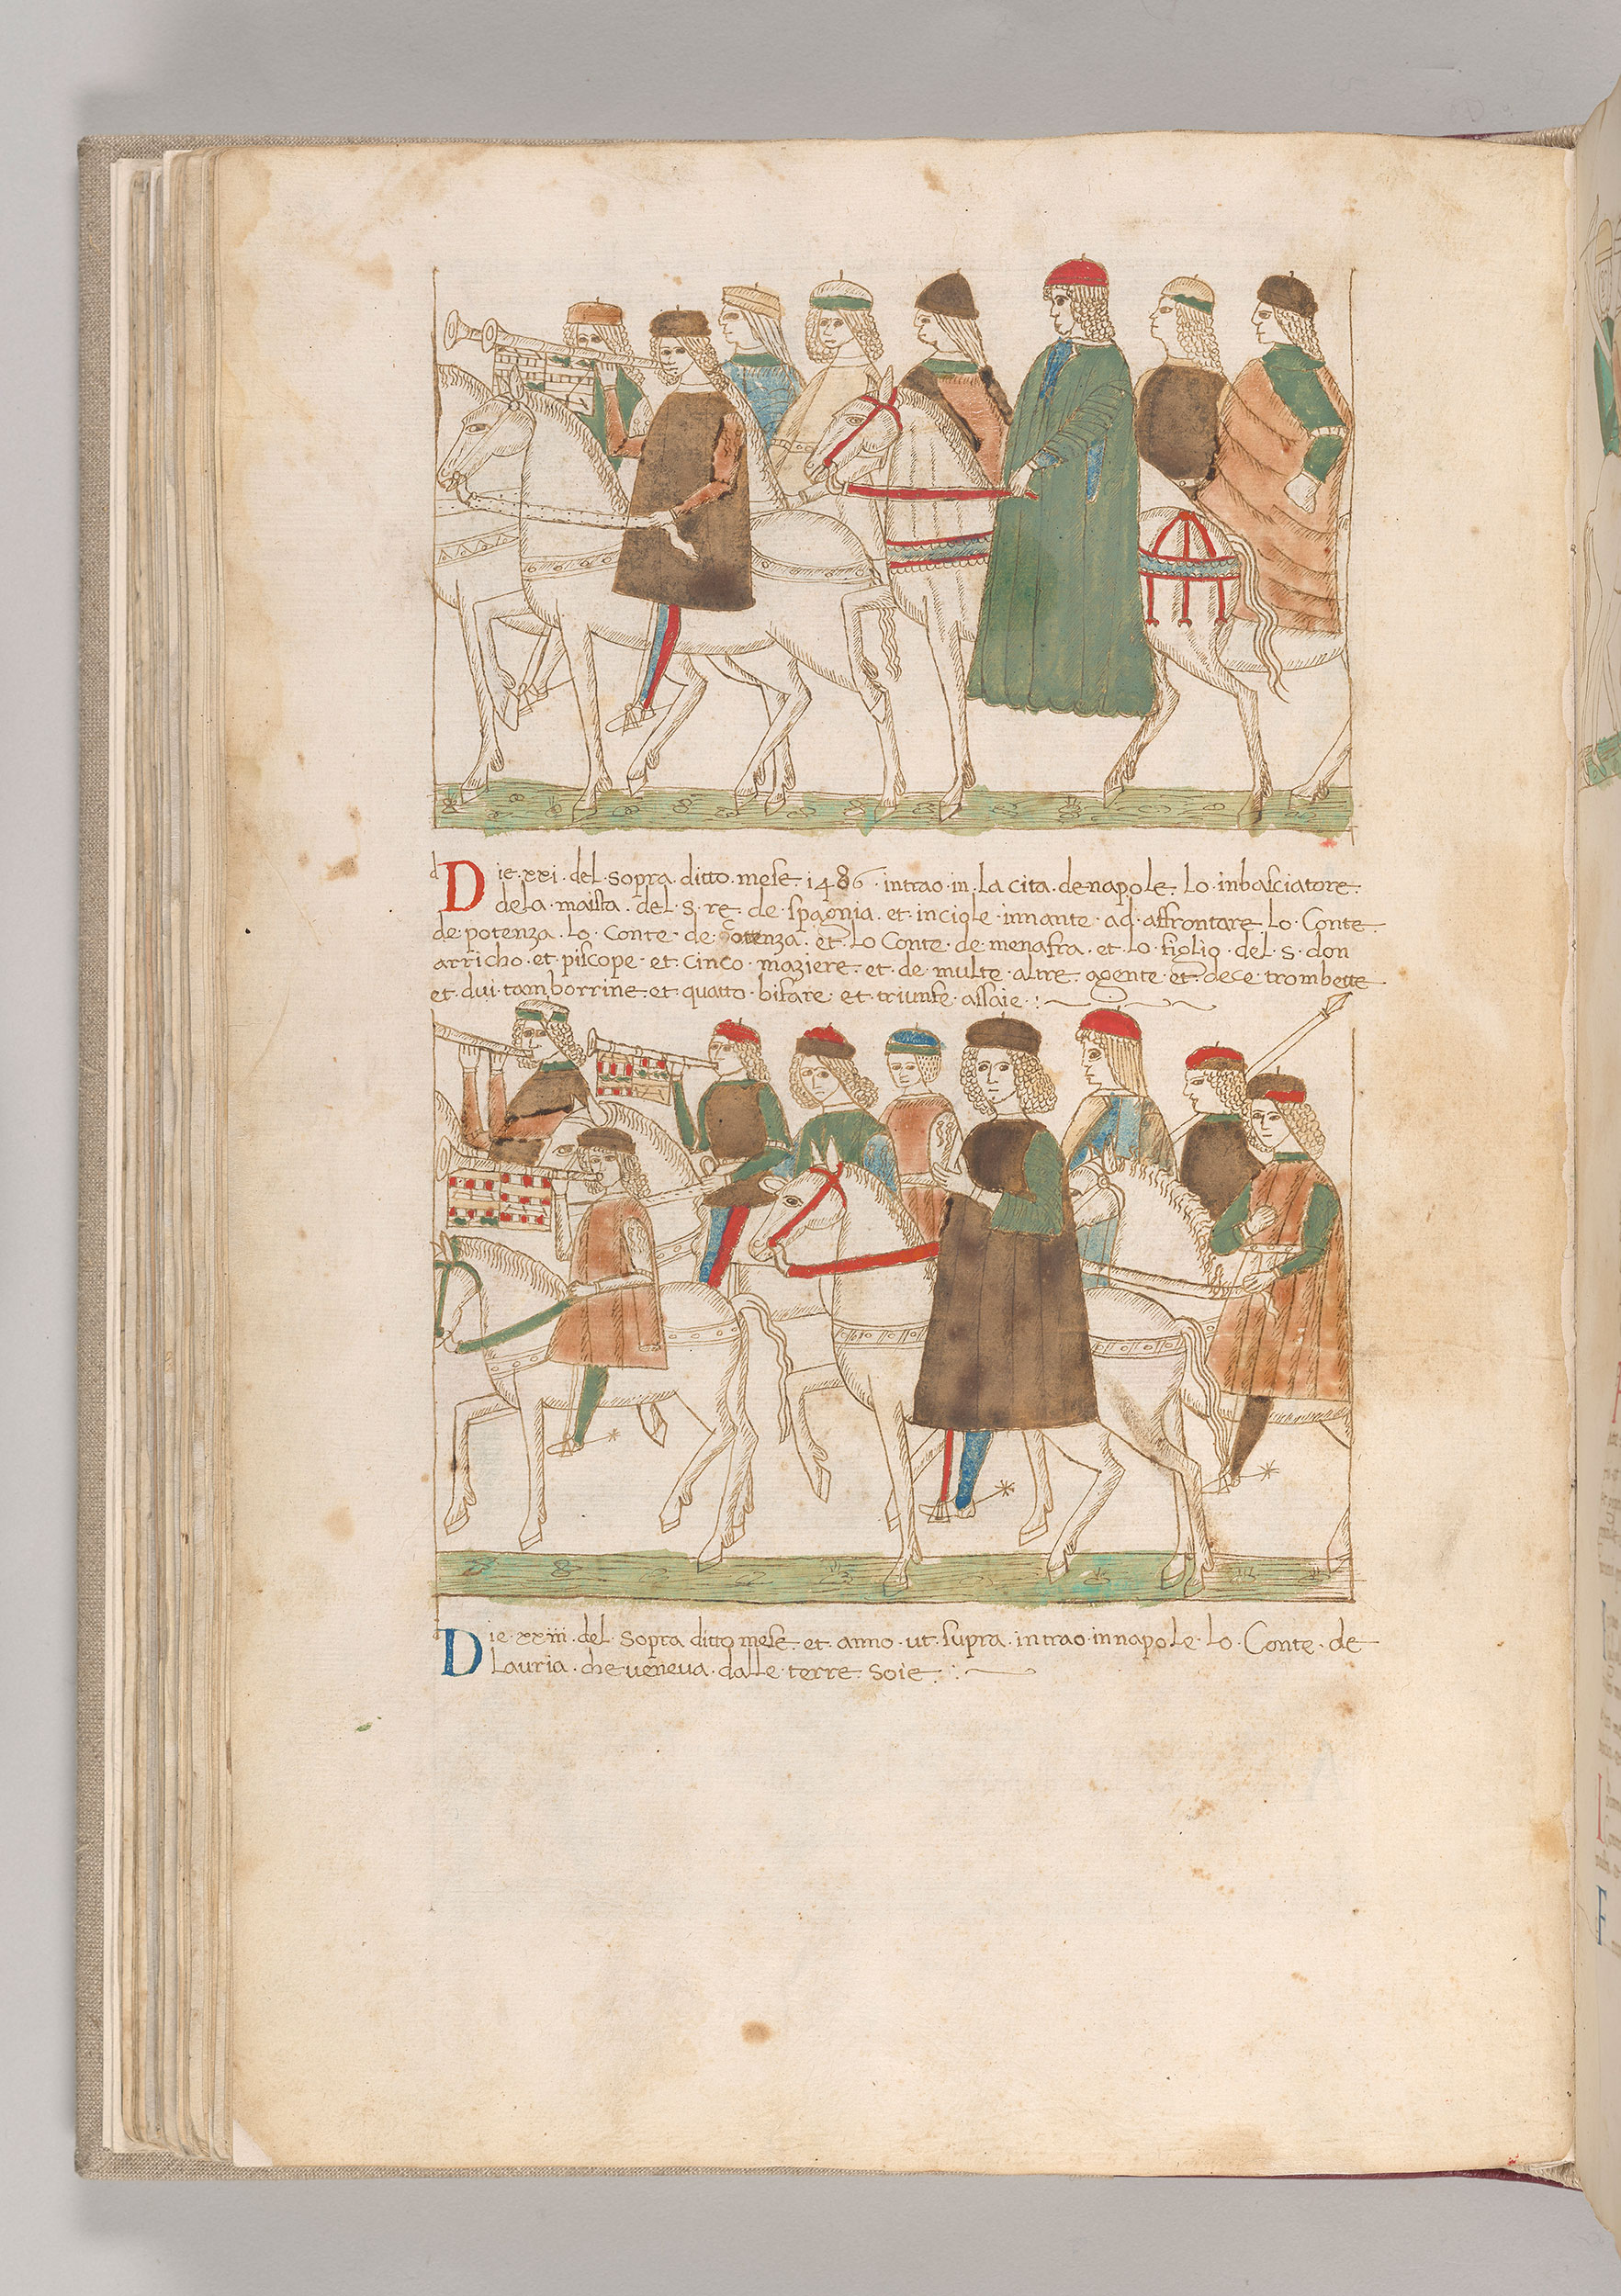 Die·xxi·del·sopra·ditto·mese·1486·intrao·in·la cita·de napole·lo·inbasciatore·
dela·maista·del·s·re·de·spagnia·et·inciole·innante·ad·affrontare·lo·Conte·
de·potenza·lo·Conte·de· et·lo Conte·de menafra·et·lo·figlio·del·s·don
arricho·et·piscope·et·cinco·maziere·et·de·multe·altre·agente·et·dece·trombette
et·dui·tamborrine·et·quatto·bifare·et·triunfe·assaie·:
Die·xxiii·del·sopra ditto mese·et·anno·ut·supra·intrao·in napole·lo·Conte·de
Lauria·che veneva·dalle·terre·soie·: